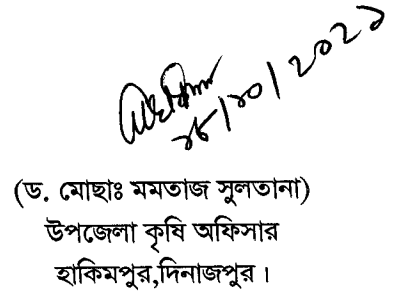 ২৮/১০/২০২১
(ড. মোছাঃ মমতাজ সুলতানা)
উপজেলা কৃষি অফিসার
হাকিমপুর,দিনাজপুর।